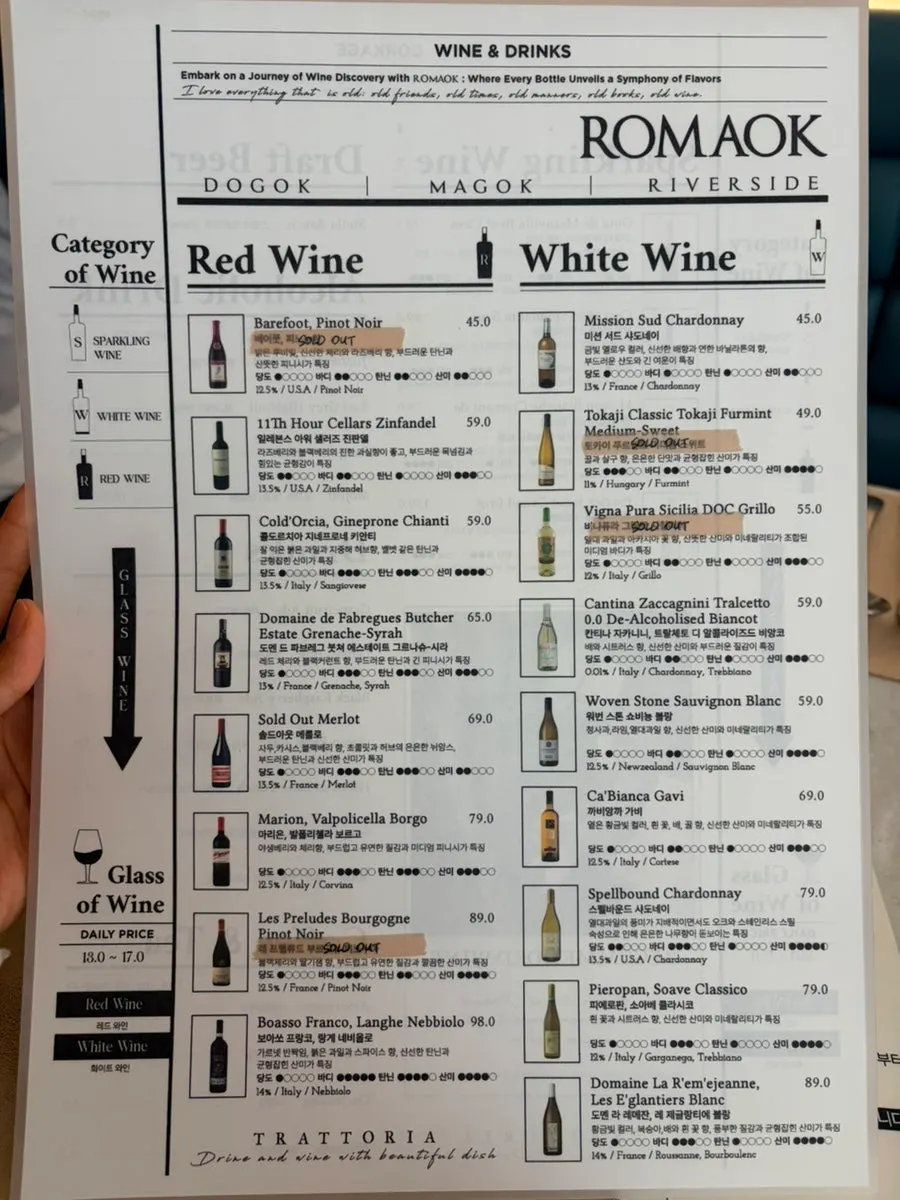 WINE & DRINKS
Embark on a Journey of Wine Discovery with ROMAOK : Where Every Bottle Unveils a Symphony of Flavors
I love everything that is old: old friends, old times, old manners, old books, old wine.
ROMAOK
DOGOK | MAGOK | RIVERSIDE
Category
of Wine
S SPARKLING
WINE
W WHITE WINE
R RED WINE
GLASS WINE
Glass
of Wine
DAILY PRICE
13.0 ~ 17.0
Red Wine
레드 와인
White Wine
화이트 와인
Red Wine
R
Barefoot, Pinot Noir 45.0
SOLD OUT
밝은 루비빛, 신선한 체리와 라즈베리 향, 부드러운 탄닌과
산뜻한 피니시가 특징
당도 ●○○○○ 바디 ●●○○○ 탄닌 ●●○○○ 산미 ●●○○○
12.5% / U.S.A / Pinot Noir
11Th Hour Cellars Zinfandel 59.0
일레븐스 아워 셀러즈 진판델
라즈베리와 블랙베리의 진한 과실향이 좋고, 부드러운 목넘김과
힘있는 균형감이 특징
당도 ●●○○○ 바디 ●●○○○ 탄닌 ●○○○○ 산미 ●●●○○
13.5% / U.S.A / Zinfandel
Cold'Orcia, Gineprone Chianti 59.0
콜도르치아 지네프로네 키안티
잘 익은 붉은 과일과 지중해 허브향, 벨벳 같은 탄닌과
균형잡힌 산미가 특징
당도 ●○○○○ 바디 ●●●○○ 탄닌 ●●●○○ 산미 ●●●●○
13.5% / Italy / Sangiovese
Domaine de Fabregues Butcher 65.0
Estate Grenache-Syrah
도멘 드 파브레그 붓쳐 에스테이트 그르나슈-시라
레드 체리와 블랙커런트 향, 부드러운 탄닌과 긴 피니시가 특징
당도 ●○○○○ 바디 ●●●○○ 탄닌 ●●●○○ 산미 ●●●○○
13% / France / Grenache, Syrah
Sold Out Merlot 69.0
솔드아웃 메를로
자두,카시스,블랙베리 향, 초콜릿과 허브의 은은한 뉘앙스,
부드러운 탄닌과 신선한 산미가 특징
당도 ●○○○○ 바디 ●●●○○ 탄닌 ●●●○○ 산미 ●●○○○
13.5% / France / Merlot
Marion, Valpolicella Borgo 79.0
마리온, 발폴리첼라 보르고
야생베리와 체리향, 부드럽고 유연한 질감과 미디엄 피니시가 특징
당도 ●○○○○ 바디 ●●●○○ 탄닌 ●●●○○ 산미 ●●●○○
12.5% / Italy / Corvina
Les Preludes Bourgogne 89.0
Pinot Noir
SOLD OUT
블랙체리와 딸기잼 향, 부드럽고 유연한 질감과 깔끔한 산미가 특징
당도 ●○○○○ 바디 ●●●○○ 탄닌 ●●○○○ 산미 ●●●●○
12.5% / France / Pinot Noir
Boasso Franco, Langhe Nebbiolo 98.0
보아쏘 프랑코, 랑게 네비올로
가르넷 반짝임, 붉은 과일과 스파이스 향, 신선한 탄닌과
균형잡힌 산미가 특징
당도 ●○○○○ 바디 ●●●●● 탄닌 ●●●●○ 산미 ●●●●○
14% / Italy / Nebbiolo
TRATTORIA
Drine and wine with beautiful dish
White Wine
W
Mission Sud Chardonnay 45.0
미션 서드 샤도네이
금빛 옐로우 컬러, 신선한 배향과 연한 바닐라톤의 향,
부드러운 산도와 긴 여운이 특징
당도 ●○○○○ 바디 ●●○○○ 탄닌 ●○○○○ 산미 ●●○○○
13% / France / Chardonnay
Tokaji Classic Tokaji Furmint 49.0
Medium-Sweet
SOLD OUT
꿀과 살구 향, 은은한 단맛과 균형잡힌 산미가 특징
당도 ●●●○○ 바디 ●●○○○ 탄닌 ●○○○○ 산미 ●●●●○
11% / Hungary / Furmint
Vigna Pura Sicilia DOC Grillo 55.0
SOLD OUT
열대 과일과 아카시아 꽃 향, 산뜻한 산미와 미네랄리티가 조합된
미디엄 바디가 특징
당도 ●○○○○ 바디 ●●○○○ 탄닌 ●○○○○ 산미 ●●●○○
12% / Italy / Grillo
Cantina Zaccagnini Tralcetto 59.0
0.0 De-Alcoholised Biancot
칸티나 자카니니, 트랄체토 디 알콜라이즈드 비앙코
배와 시트러스 향, 신선한 산미와 부드러운 질감이 특징
당도 ●○○○○ 바디 ●●○○○ 탄닌 ●○○○○ 산미 ●●●○○
0.01% / Italy / Chardonnay, Trebbiano
Woven Stone Sauvignon Blanc 59.0
워번 스톤 쇼비뇽 블랑
청사과,라임,열대과일 향, 신선한 산미와 미네랄리티가 특징
당도 ●○○○○ 바디 ●●○○○ 탄닌 ●○○○○ 산미 ●●●●○
12.5% / Newzealand / Sauvignon Blanc
Ca'Bianca Gavi 69.0
까비앙까 가비
옅은 황금빛 컬러, 흰 꽃, 배, 꿀 향, 신선한 산미와 미네랄리티가 특징
당도 ●○○○○ 바디 ●●○○○ 탄닌 ●○○○○ 산미 ●●●○○
12.5% / Italy / Cortese
Spellbound Chardonnay 79.0
스펠바운드 샤도네이
열대과일의 풍미가 지배적이면서도 오크와 스테인리스 스틸
숙성으로 인해 은은한 나무향이 돋보이는 특징
당도 ●●○○○ 바디 ●●●○○ 탄닌 ●○○○○ 산미 ●●●●◐
13.5% / U.S.A / Chardonnay
Pieropan, Soave Classico 79.0
피에로판, 소아베 클라시코
흰 꽃과 시트러스 향, 신선한 산미와 미네랄리티가 특징
당도 ●○○○○ 바디 ●●●○○ 탄닌 ●○○○○ 산미 ●●●●○
12% / Italy / Garganega, Trebbiano
Domaine La R'em'ejeanne, 89.0
Les E'glantiers Blanc
도멘 라 레메잔, 레 제글랑티에 블랑
황금빛 컬러, 복숭아,배와 흰 꽃 향, 풍부한 질감과 균형잡힌 산미가 특징
당도 ●○○○○ 바디 ●●●○○ 탄닌 ●○○○○ 산미 ●●●●○
14% / France / Roussanne, Bourboulenc